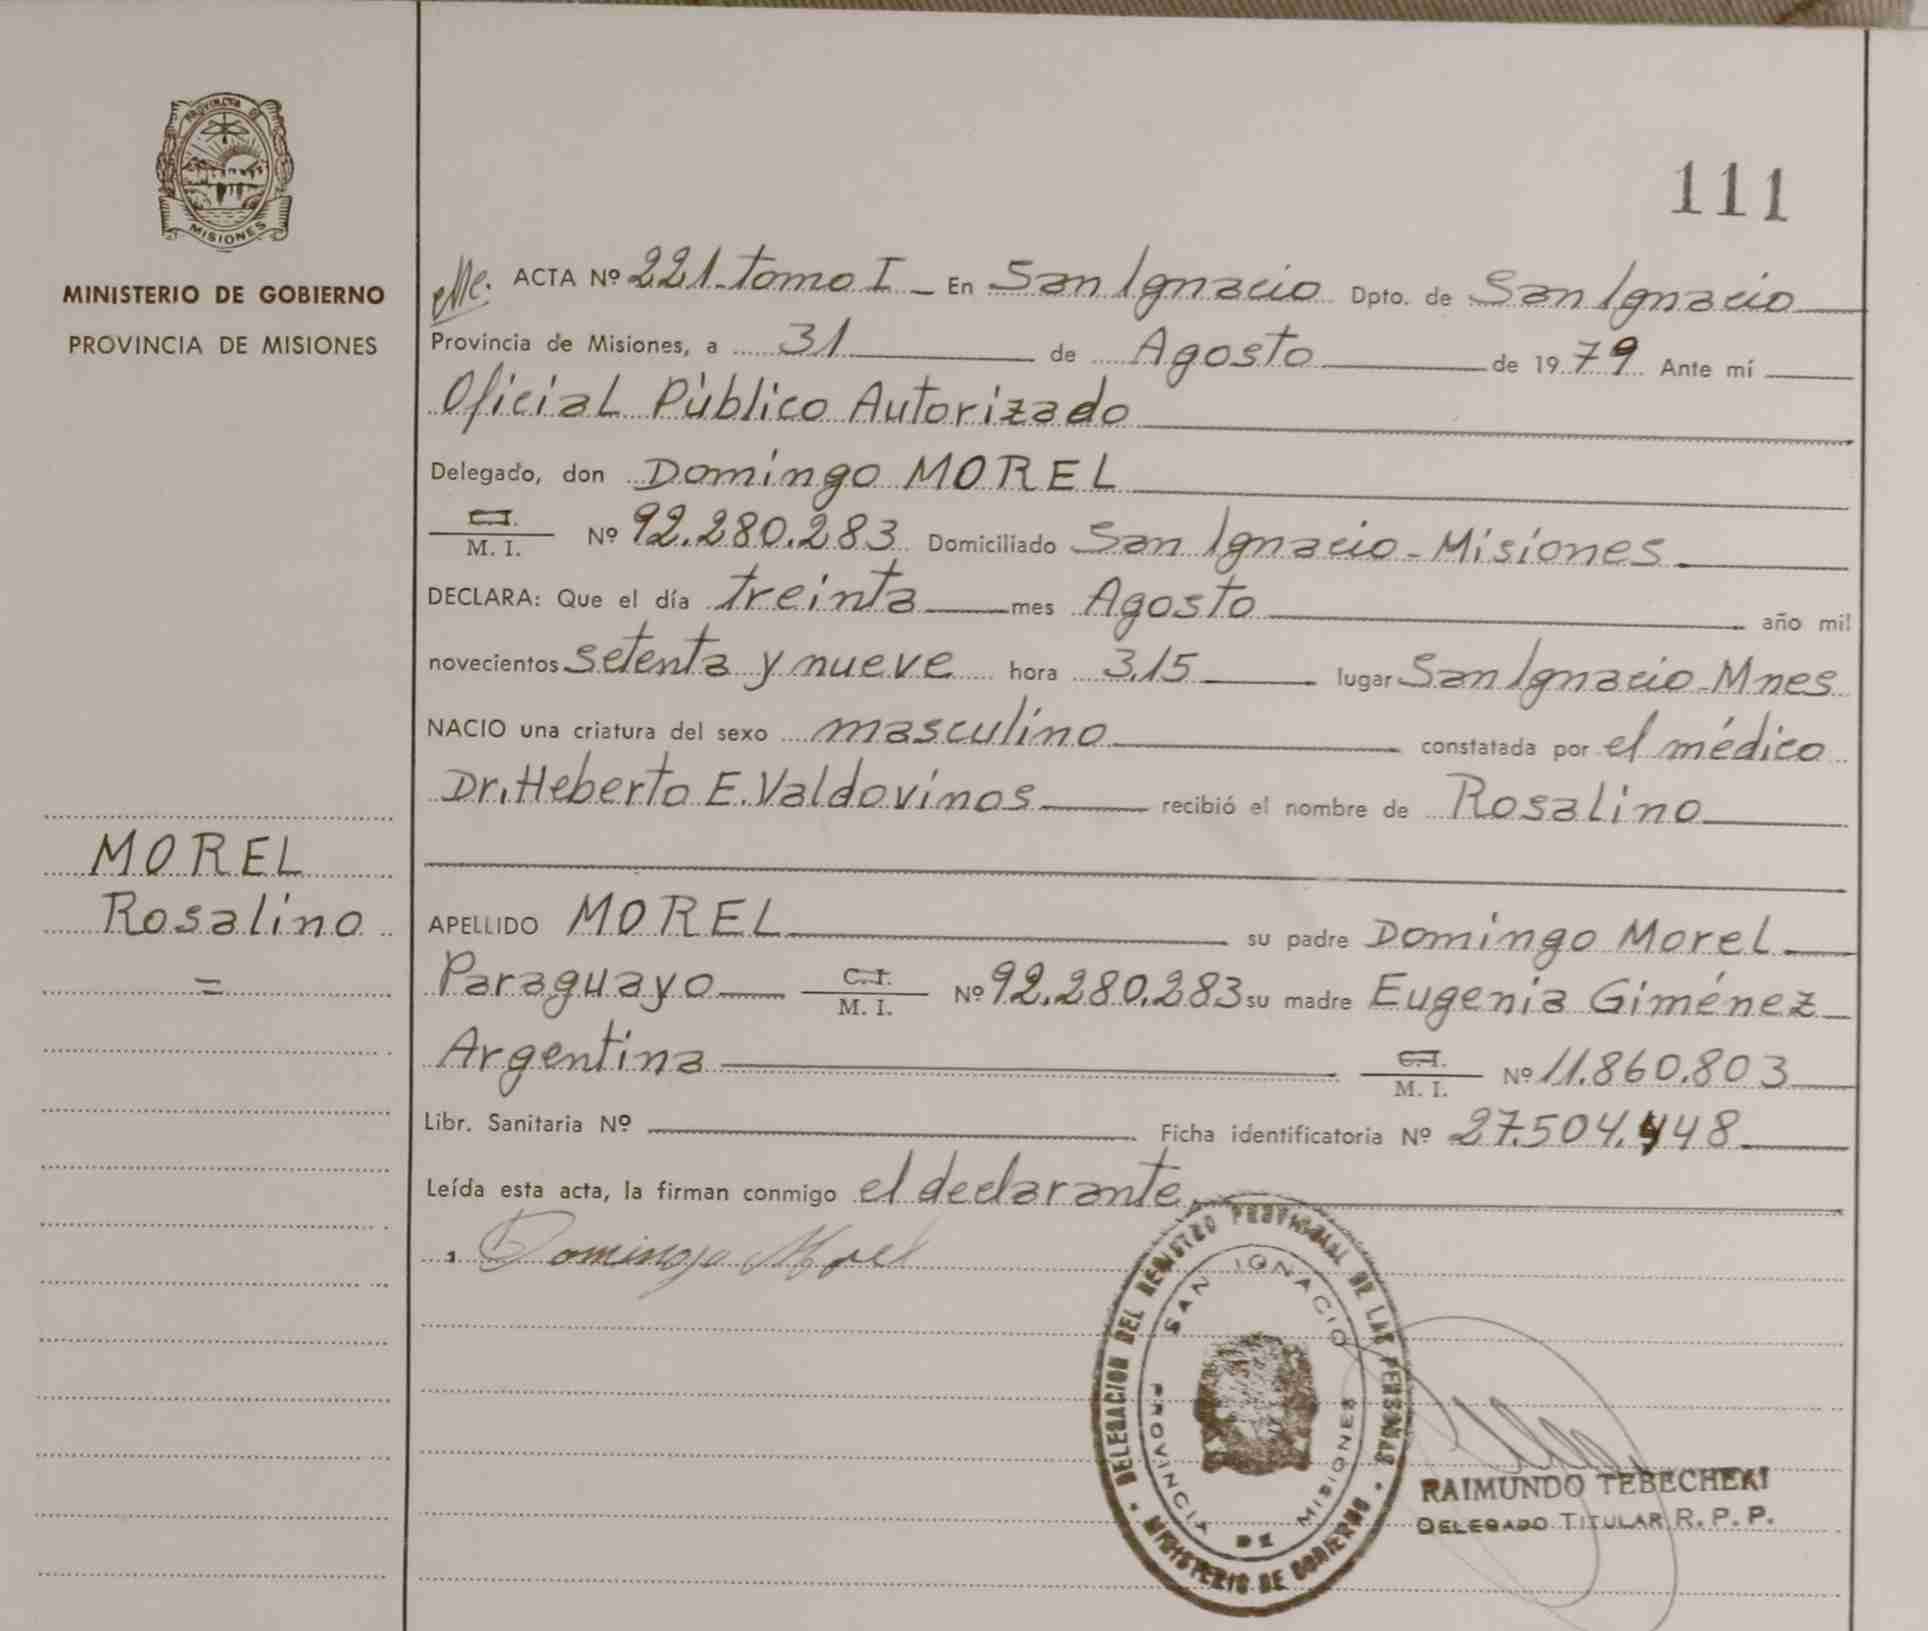 PROVINCIA DE
MISIONES
MINISTERIO DE GOBIERNO
PROVINCIA DE MISIONES
MOREL
Rosalino
=
111
ACTA Nº 221-tomo I - En San Ignacio Dpto. de San Ignacio
Provincia de Misiones, a 31 de Agosto de 1979 Ante mí
Oficial Público Autorizado
Delegado, don Domingo MOREL
C.I.
M. I. Nº 92.280.283 Domiciliado San Ignacio - Misiones
DECLARA: Que el día treinta mes Agosto año mil
novecientos setenta y nueve hora 3.15 lugar San Ignacio-Mnes
NACIO una criatura del sexo masculino constatada por el médico
Dr. Heberto E. Valdovinos recibió el nombre de Rosalino
APELLIDO MOREL su padre Domingo Morel
Paraguayo C.I. M. I. Nº 92.280.283 su madre Eugenia Giménez
Argentina C.I. M. I. Nº 11.860.803
Libr. Sanitaria Nº Ficha identificatoria Nº 27.504.448
Leída esta acta, la firman conmigo el declarante
Domingo Morel
DELEGACION DEL REGISTRO PROVINCIAL DE LAS PERSONAS
MINISTERIO DE GOBIERNO
SAN IGNACIO
PROVINCIA DE MISIONES
RAIMUNDO TEBECHERI
DELEGADO TITULAR R. P. P.